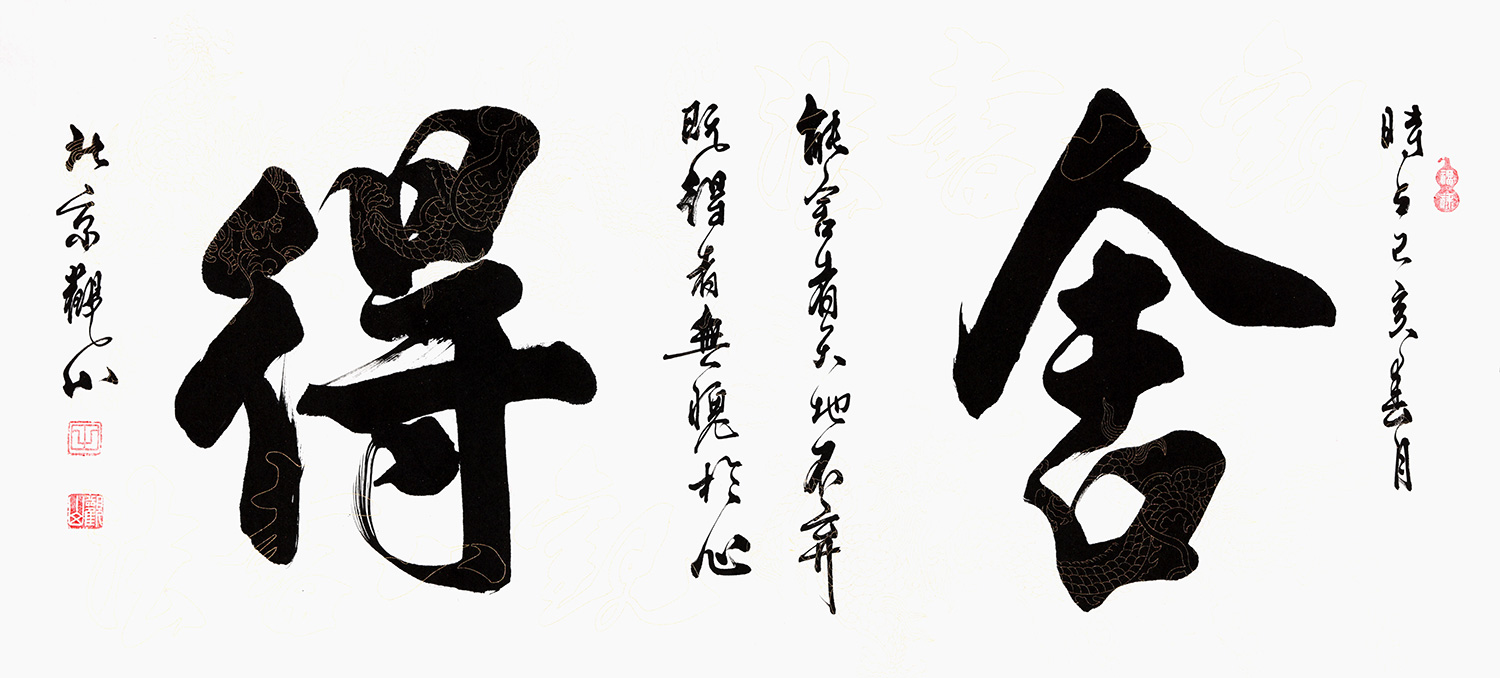 時于己亥春月
舍
能舍者天地不弃
既得者無愧於心
得
北京觀山